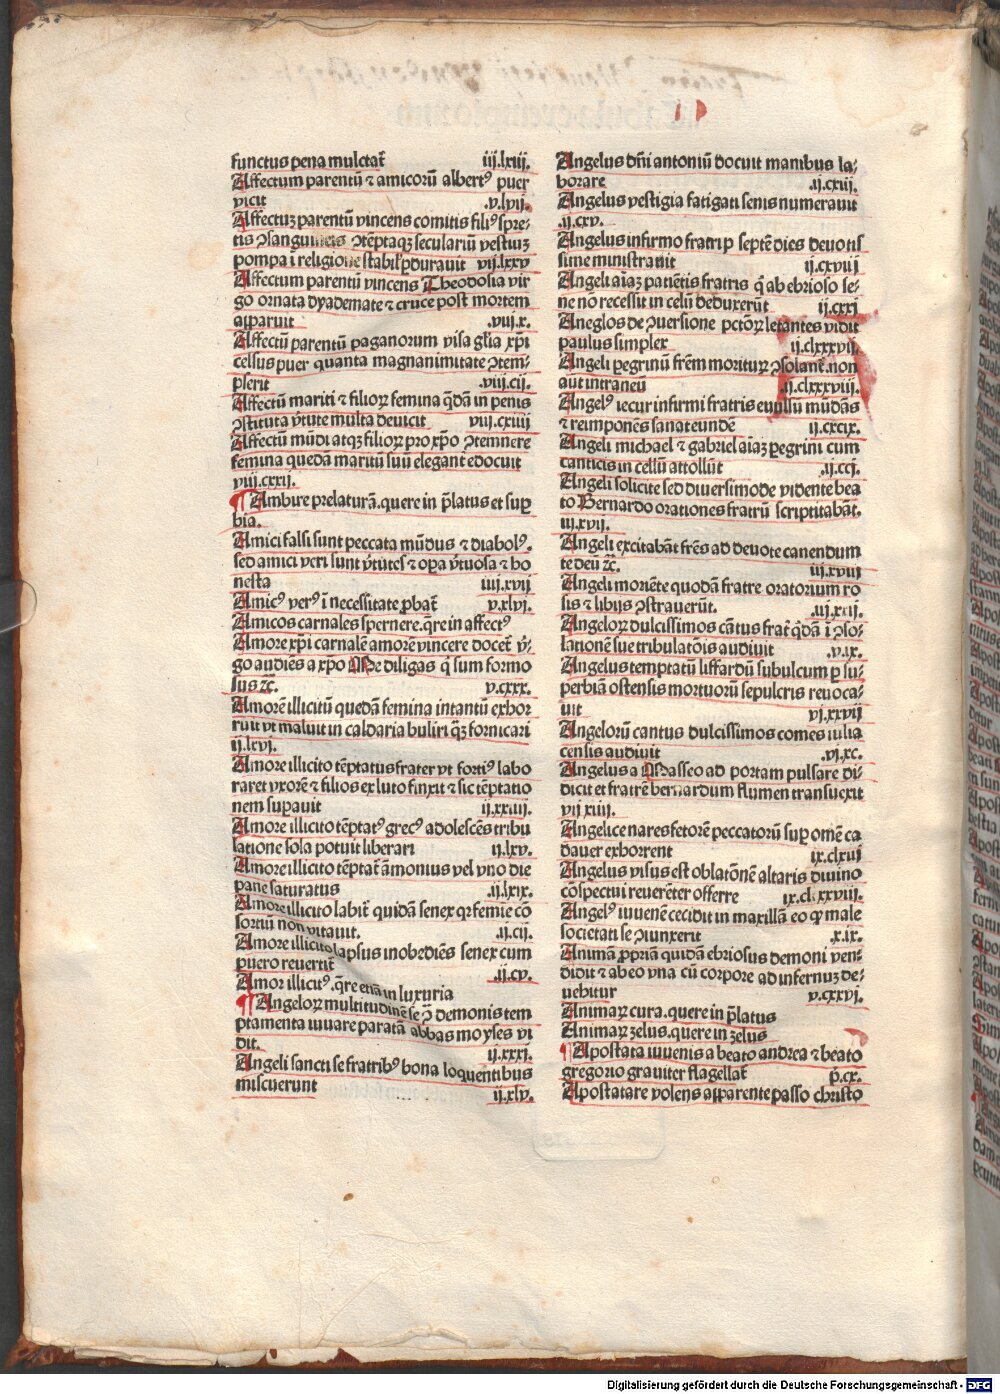 functus pena mulctat᷑ iij.lxiij.
Affectum parentū ⁊ amicorū albertꝰ puer
vicit .v.lvij.
Affectuꝫ parentū vincens comitis filiꝰ spre-
tis ꝯsanguineis ꝯtēptaqꝫ seculariū vestiuꝫ
pompa ī religione stabilʼr ꝑdurauit vij.lxxv
Affectum parentū vincens Theodosia vir
go ornata dyademate ⁊ cruce post mortem
apparuit .viij.x.
Affectū parentū paganorum visa gl̄ia xp̄i
celsus puer quanta magnanimitate ꝯtem-
pserit .viij.cij.
Affectū mariti ⁊ filioꝝ femina q̄dā in penis
ꝯstituta v̓tute multa deuicit viij.cxiiij
Affectū mūdi atqꝫ filioꝝ pro xp̄o ꝯtemnere
femina quedā maritū suū elegant᷑ edocuit
viij.cxxij.
¶ Ambire prelaturā.quere in p̄latus et suꝑ
bia.
Amici falsi sunt peccata mūdus ⁊ diabolꝰ.
sed amici veri sunt v̓tutes ⁊ oꝑa v̓tuosa ⁊ ho
nesta iiij.xvij
Amicꝰ verꝰ ī necessitate ꝓbat᷑ v.xlvi.
Amicos carnales spernere.q̄re in affectꝰ
Amore xp̄i carnalē amorē vincere docet᷑ v̓-
go audiēs a xp̄o Me diligas q̓ sum formo
sus ⁊c̄. v.cxxx.
Amorē illicitū quedā femina intantū exhor
ruit vt maluit in caldaria buliri q̄ꝫ fornicari
ij.lxvj.
Amore illicito tēptatus frater vt fortiꝰ labo
raret vxorē ⁊ filios ex luto finxit ⁊ sic tēptatio
nem suꝑauit ij.xxiiij.
Amore illicito tēptatꝰ grecꝰ adolescēs tribu
latione sola potuit liberari ij.lxv.
Amore illicito tēptat᷑ āmonius vel vno die
pane saturatus .ij.lxix.
Amore illicito labit᷑ quidā senex qꝛ femie cō
sortiū non vitauit. .ij.cij.
Amore illicito lapsus inobediēs senex cum
puero reuertit᷑ .ij.cv.
Amor illicitꝰ.q̄re etiā in luxuria
¶ Angeloꝝ multitudinē se ꝯ̄ demonis tem
ptamenta iuuare paratā abbas moyses vi
dit. ij.xxxi.
Angeli sancti se fratribꝰ bona loquentibus
miscuerunt ij.xlv.
Angelus dn̄i antoniū docuit manibus la-
borare .ij.cxiij.
Angelus vestigia fatigati senis numerauit
.ij.cxv.
Angelus infirmo fratri ꝑ septē dies deuotis
sime ministrauit ij.cxviij
Angeli aīaꝫ patiētis fratris q̓ ab ebrioso se-
ne nō recessit in celū deduxerūt ij.cxxj
Aneglos de ꝯuersione pctōꝝ letantes vidit
paulus simplex ij.clxxxvij.
Angeli ꝑegrinū frēm morituꝝ ꝯsolant᷑.non
aut intraneū .ij.clxxxviij.
Angelꝰ iecur infirmi fratris euulsū mūdās
⁊ reimponēs sanat eundē ij.cxcix.
Angeli michael ⁊ gabriel aīaꝫ ꝑegrini cum
canticis in cellū attollūt .ij.ccj.
Angeli solicite sed diuersimode vidente bea
to Bernardo orationes fratrū scriptitabāt.
iij.xvij.
Angeli excitabāt frēs ad deuote canendum
te deū ⁊c̄. iij.xviij
Angeli moriēte quodā fratre oratorium ro
sis ⁊ lilijs ꝯstrauerūt. .iij.xxij.
Angeloꝝ dulcissimos cātus frat᷑ q̓dā ī ꝯso-
lationē sue tribulatōis audiuit .v.ix.
Angelus temptatū liffardū subulcum ꝑ su-
perbiā ostensis mortuorū sepulcris reuoca-
uit vj.xxvij
Angelorū cantus dulcissimos comes iulia
censis audiuit .vj.xc.
Angelus a Masseo ad portam pulsare di-
dicit et fratrē bernardum flumen transuexit
vij xiiij.
Angelice nares fetorē peccatorū suꝑ omē ca
dauer exhorrent ix.clxvj
Angelus visus est oblatōnē altaris diuino
cōspectui reuerēter offerre ix.clxxviij.
Angelꝰ iuuenē cecidit in maxillā eo ꝙ male
societati se ꝯiunxerit .x.ix.
Animā ꝓpriā quidā ebriosus demoni ven-
didit ⁊ ab eo vna cū corpore ad infernuꝫ de-
uehitur v.cxxvj.
Animaꝝ cura.quere in p̄latus
Animaꝝ zelus.quere in zelus
¶ Apostata iuuenis a beato andrea ⁊ beato
gregorio grauiter flagellat᷑ p̓.cx.
Apostatare volens apparente passo christo
Digitalisierung gefördert durch die Deutsche Forschungsgemeinschaft - DFG